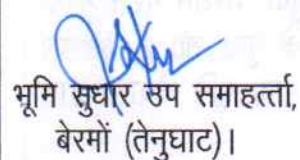 भूमि सुधार उप समाहर्त्ता,
बेरमों (तेनुघाट)।